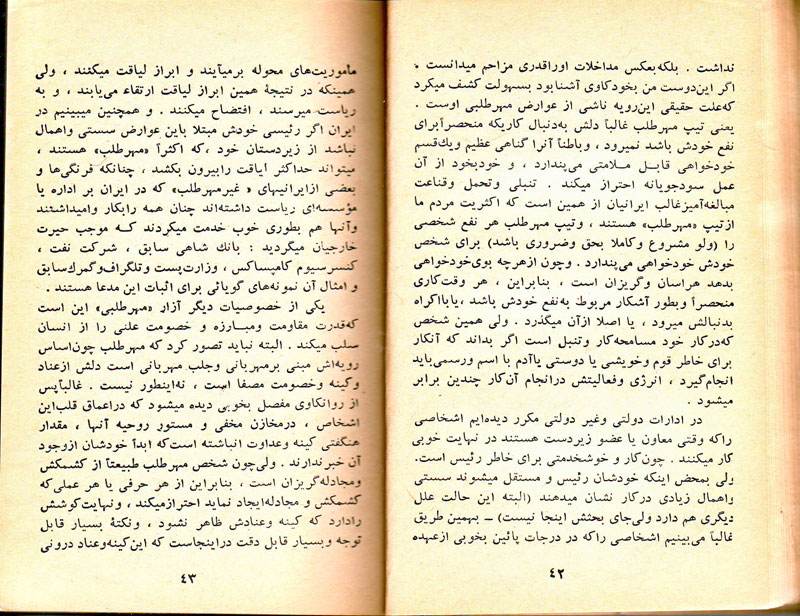 نداشت . بلکه‌بعکس مداخلات اوراقدری مزاحم میدانست .
اگر این‌دوست من بخودکاوی آشنابود بسهولت کشف میکرد
که‌علت حقیقی این‌رویه ناشی از عوارض مهرطلبی اوست .
یعنی تیپ مهرطلب غالباً دلش به‌دنبال کاریکه منحصراًبرای
نفع خودش باشد نمیرود ، وباطناً آنرا گناهی عظیم ویك‌قسم
خودخواهی قابل ملامتی می‌پندارد ، و خودبخود از آن
عمل سودجویانه احتراز میکند . تنبلی وتحمل وقناعت
مبالغه‌آمیزغالب ایرانیان از همین است که اکثریت مردم ما
ازتیپ «مهرطلب» هستند ، وتیپ مهرطلب هر نفع شخصی
را (ولو مشروع وکاملا بحق وضروری باشد) برای شخص
خودش خودخواهی می‌پندارد . وچون ازهرچه بوی‌خودخواهی
بدهد هراسان وگریزان است ، بنابراین ، هر وقت‌کاری
منحصراً وبطور آشکار مربوط به‌نفع خودش باشد ،یابااکراه
بدنبالش میرود ، یا اصلا ازآن میگذرد . ولی همین شخص
که‌درکار خود مسامحه‌کار وتنبل است اگر بداند که آنکار
برای خاطر قوم وخویشی یا دوستی یاآدم با اسم ورسمی‌باید
انجام‌گیرد ، انرژی وفعالیتش درانجام آن‌کار چندین برابر
میشود .
در ادارات دولتی وغیر دولتی مکرر دیده‌ایم اشخاصی
راکه وقتی معاون یا عضو زیردست هستند در نهایت خوبی
کار میکنند . چون‌کار و خوشخدمتی برای خاطر رئیس است.
ولی بمحض اینکه خودشان رئیس و مستقل میشوند سستی
واهمال زیادی درکار نشان میدهند (البته این حالت علل
دیگری هم دارد ولی‌جای بحثش اینجا نیست) ــ بهمین طریق
غالباً می‌بینیم اشخاصی راکه در درجات پائین بخوبی ازعهده
۴۲
ماموریت‌های محوله برمیآیند و ابراز لیاقت میکنند ، ولی
همینکه در نتیجهٔ همین ابراز لیاقت ارتقاء می‌یابند ، و به
ریاست میرسند ، افتضاح میکنند . و همچنین میبینیم در
ایران اگر رئیسی خودش مبتلا باین عوارض سستی واهمال
نباشد از زیردستان خود ،که اکثراً «مهرطلب» هستند ،
میتواند حداکثر لیاقت رابیرون بکشد ، چنانکه فرنگی‌ها و
بعضی ازایرانیهای «غیرمهرطلب» که در ایران بر اداره یا
مؤسسه‌ای ریاست داشته‌اند چنان همه رابکار وامیداشتند
وآنها هم بطوری خوب خدمت میکردند که موجب حیرت
خارجیان میگردید : بانك شاهی سابق ، شرکت نفت ،
کنسرسیوم کامپساکس ، وزارت‌پست وتلگراف‌وگمرك‌سابق
و امثال آن نمونه‌های گویائی برای اثبات این مدعا هستند .
یکی از خصوصیات دیگر آزار «مهرطلبی» این است
که‌قدرت مقاومت ومبارزه و خصومت علنی را از انسان
سلب میکند . البته نباید تصور کرد که مهرطلب چون‌اساس
رویه‌اش مبنی برمهربانی وجلب مهربانی است دلش ازعناد
وکینه وخصومت مصفا است ، نه‌اینطور نیست . غالباًپس
از روانکاوی مفصل بخوبی دیده میشود که دراعماق قلب‌این
اشخاص ، درمخازن مخفی و مستور روحیه آنها ، مقدار
هنگفتی کینه وعداوت انباشته است‌که ابداً خودشان ازوجود
آن خبرندارند . ولی‌چون شخص مهرطلب طبیعتاً از کشمکش
ومجادله‌گریزان است ، بنابراین از هر حرفی یا هر عملی‌که
کشمکش و مجادله‌ایجاد نماید احترازمیکند ، ونهایت‌کوشش
رادارد که کینه وعنادش ظاهر نشود ، ونکتهٔ بسیار قابل
توجه وبسیار قابل دقت دراینجاست که این‌کینه‌وعناد درونی
۴۳